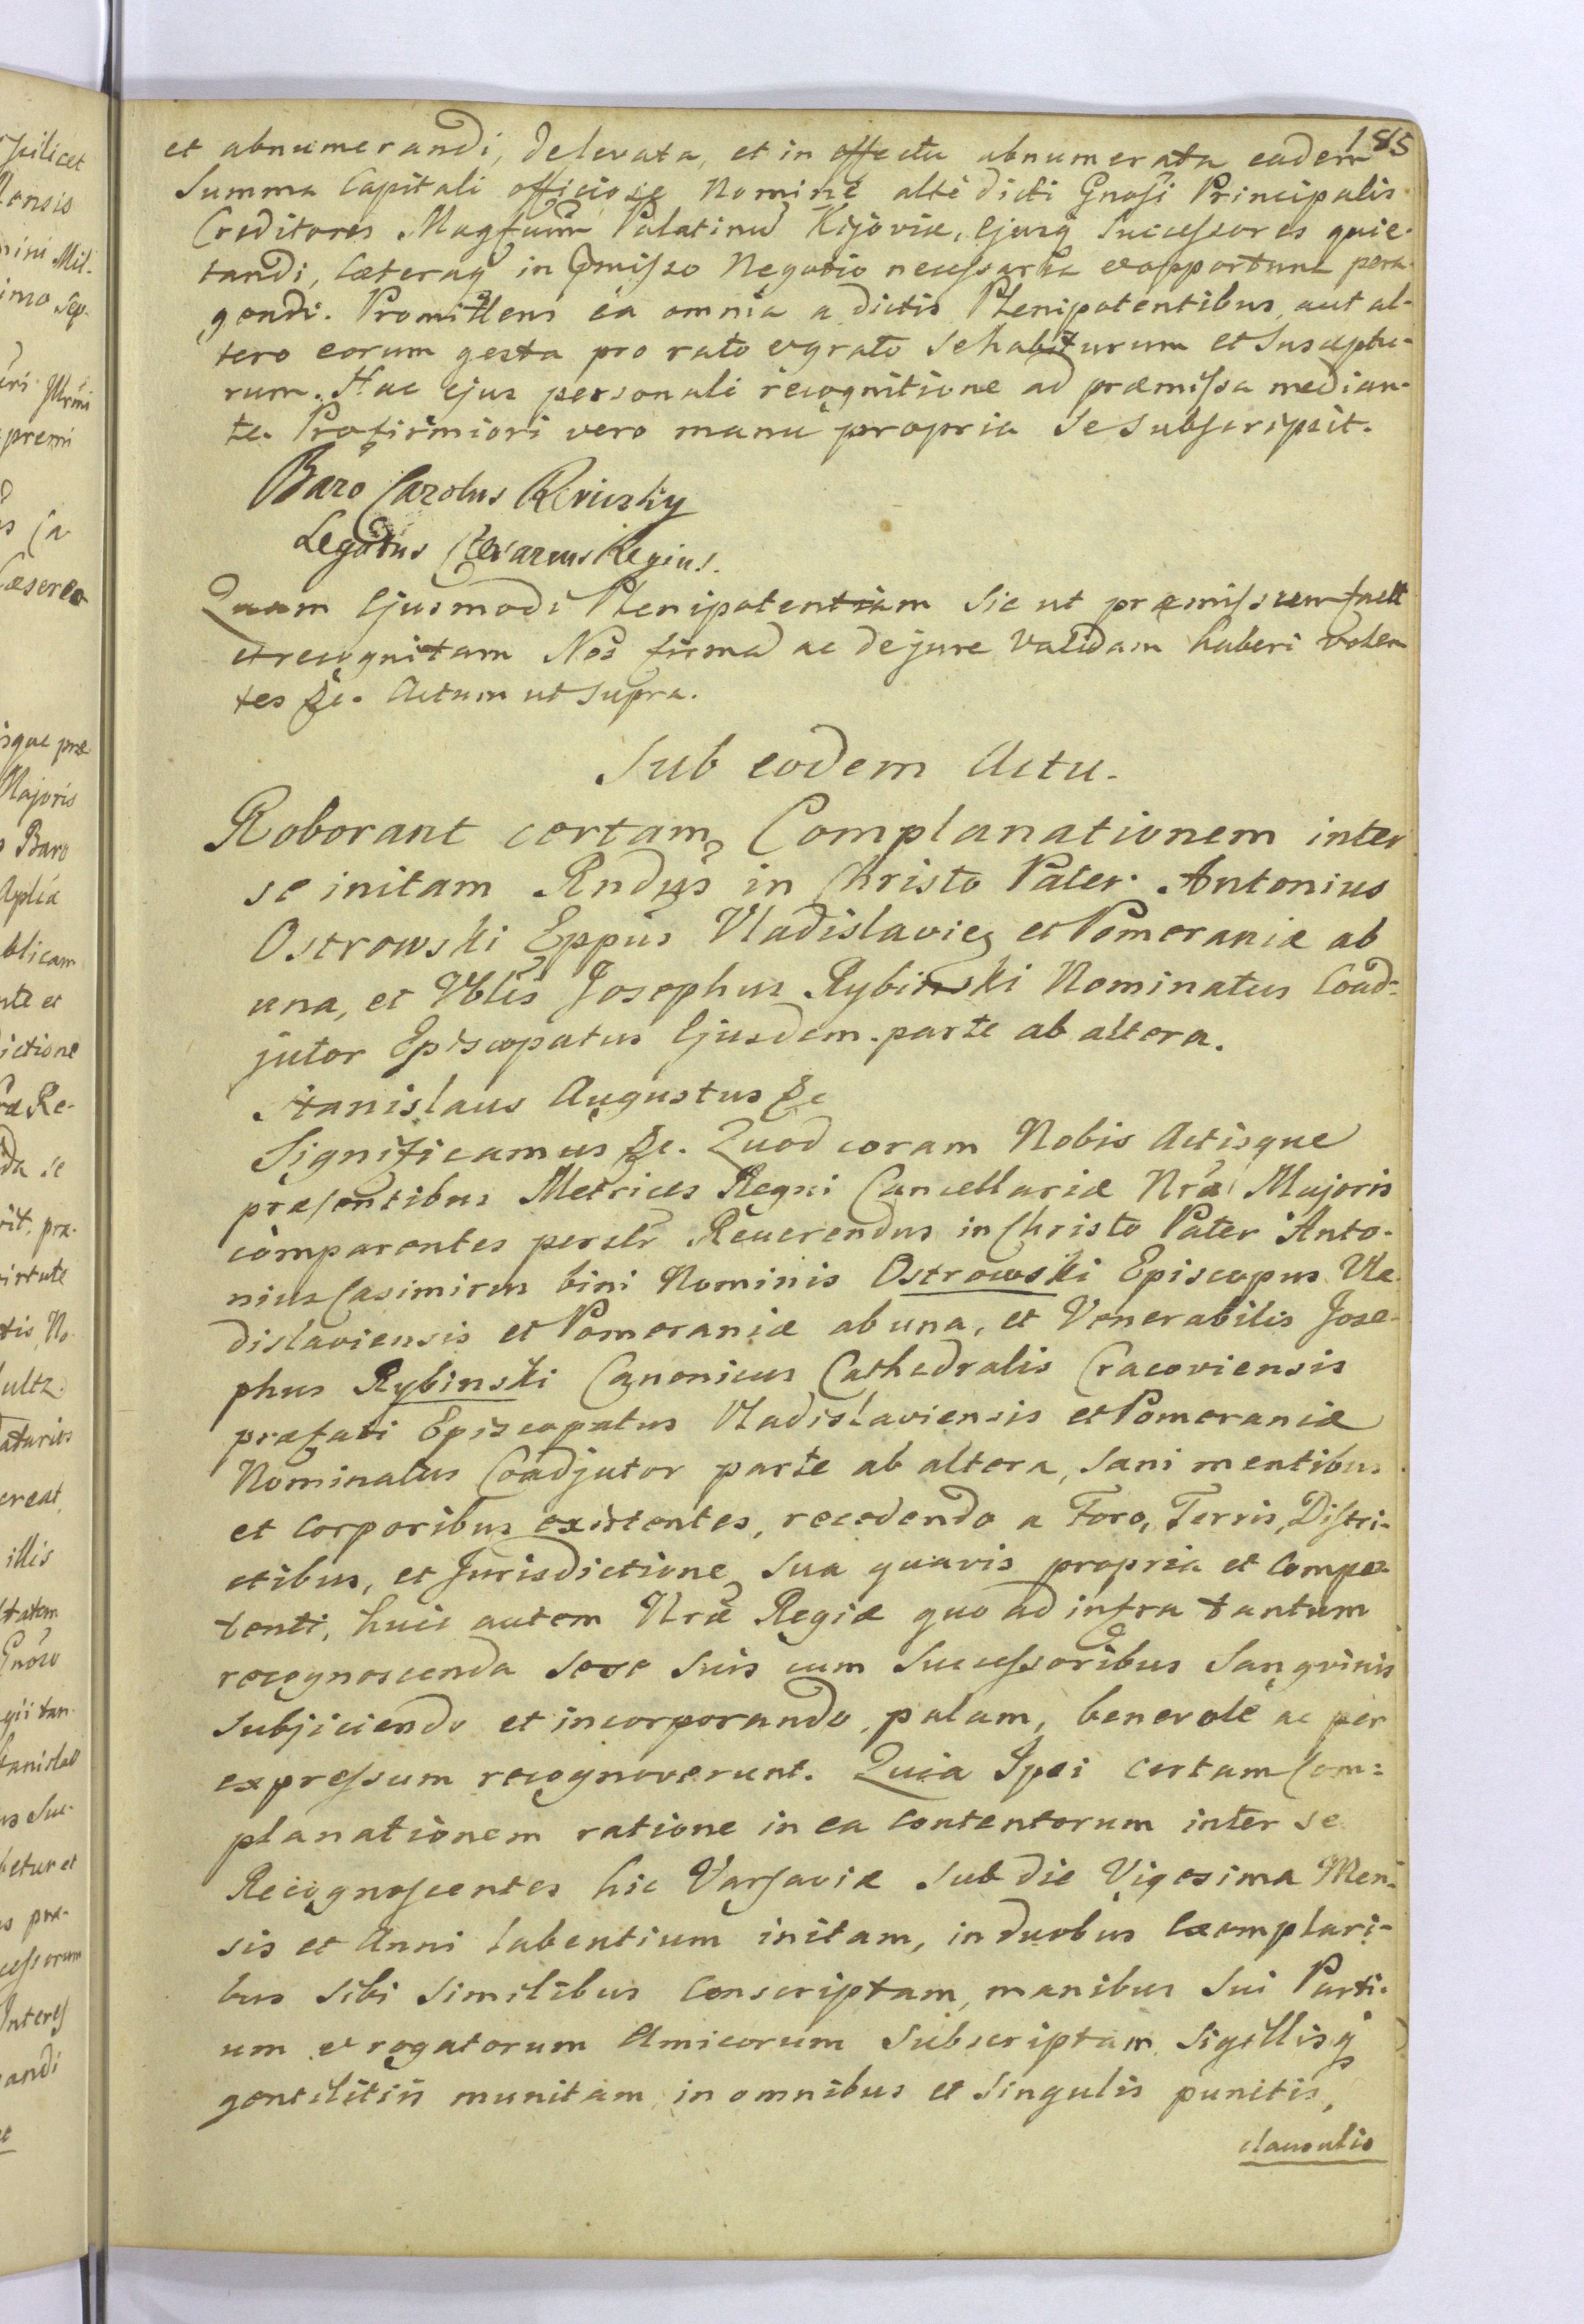 185
et abnumerandi, delevata, et in effectu abnumerata eadem
Summa Capitali officiose Nomine alte dicti Gnosi Principalis
Creditores Magfum Palatinu Kijoviæ, Ejusq Successores quie-
tandi, cæteraq in pmisso Negotio necessaria et opportuna pera-
gendi. Promittens ea omnia a dictis Plenipotentibus, aut al-
tero eorum gesta pro rato et grato se habiturum et suscептu-
rum. Hac ejus personali recognitione ad præmissa median-
te. Pro firmiori vero manu propria se subscripsit.
Baro Carolus Reviczky
Legatus Cæsareus Regius.
Quam Ejusmodi Plenipotentiam sic ut præmissum factt
et recognitam Nos firma ac de jure validam haberi volen
tes &c. Actum ut supra.
Sub eodem Actu.
Roborant certam Complanationem inter
se initam Rndus in Christo Pater Antonius
Ostrowski Eppus Vladislavien et Pomeraniæ ab
una, et Vblis Josephus Rybinski Nominatus Coad-
jutor Episcopatus Ejusdem parte ab altera.
Stanislaus Augustus &c
Significamus &c. Quod coram Nobis Actisque
præsentibus Metrices Regni Cancellariæ Nræ Majoris
comparentes personlr Reverendus in Christo Pater Anto-
nius Casimirus bini Nominis Ostrowski Episcopus Vla-
dislaviensis et Pomeraniæ ab una, et Venerabilis Jose-
phus Rybinski Canonicus Cathedralis Cracoviensis
præfati Episcopatus Vladislaviensis et Pomeraniæ
Nominatus Coadjutor parte ab altera, sani mentibus
et corporibus existentes, recedendo a Foro, Terris, Distri-
ctibus, et Jurisdictione sua quavis propria et compe-
tenti, huic autem Nræ Regiæ quo ad infra tantum
recognoscenda sese suis cum Successoribus Sangvinis
subjiciendo et incorporando, palam, benevole ac per
expressum recognoverunt. Quia Ipsi certam Com:
planationem ratione in ea contentorum inter se
Recognoscentes hic Varsaviæ sub die Vigesima Men-
sis et Anni labentium initam, in duobus Exemplari-
bus sibi similibus conscriptam, manibus sui Parti-
um et rogatorum Amicorum subscriptam, Sigillisq
gentilitiis munitam, in omnibus et singulis punctis,
clausulis